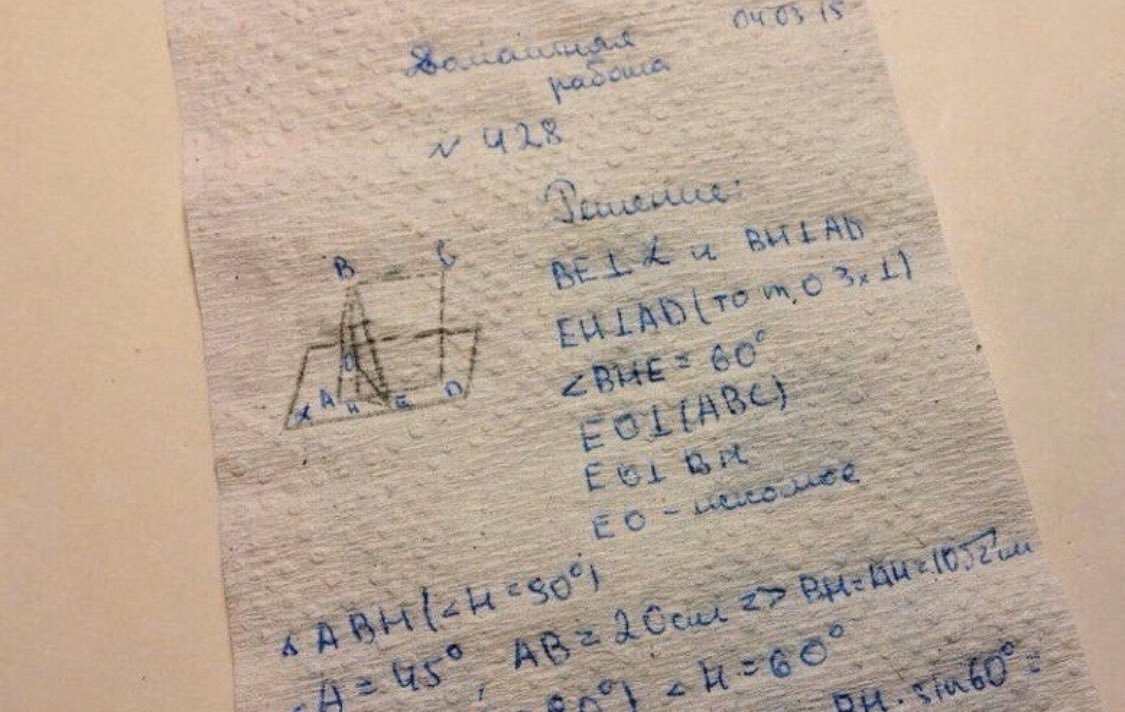 04.03.15
Домашняя
работа
№ 428
Решение:
B C
O
α A H E D
BE⊥α и BH⊥AD
EH⊥AD (то т. о 3х⊥)
∠BHE = 60°
EO⊥(ABC)
EO⊥BH
EO - искомое
△ABH (∠H = 90°)
∠A = 45°, AB = 20см => BH=AH=10√2см
90°) ∠H = 60°
BH · sin60° =